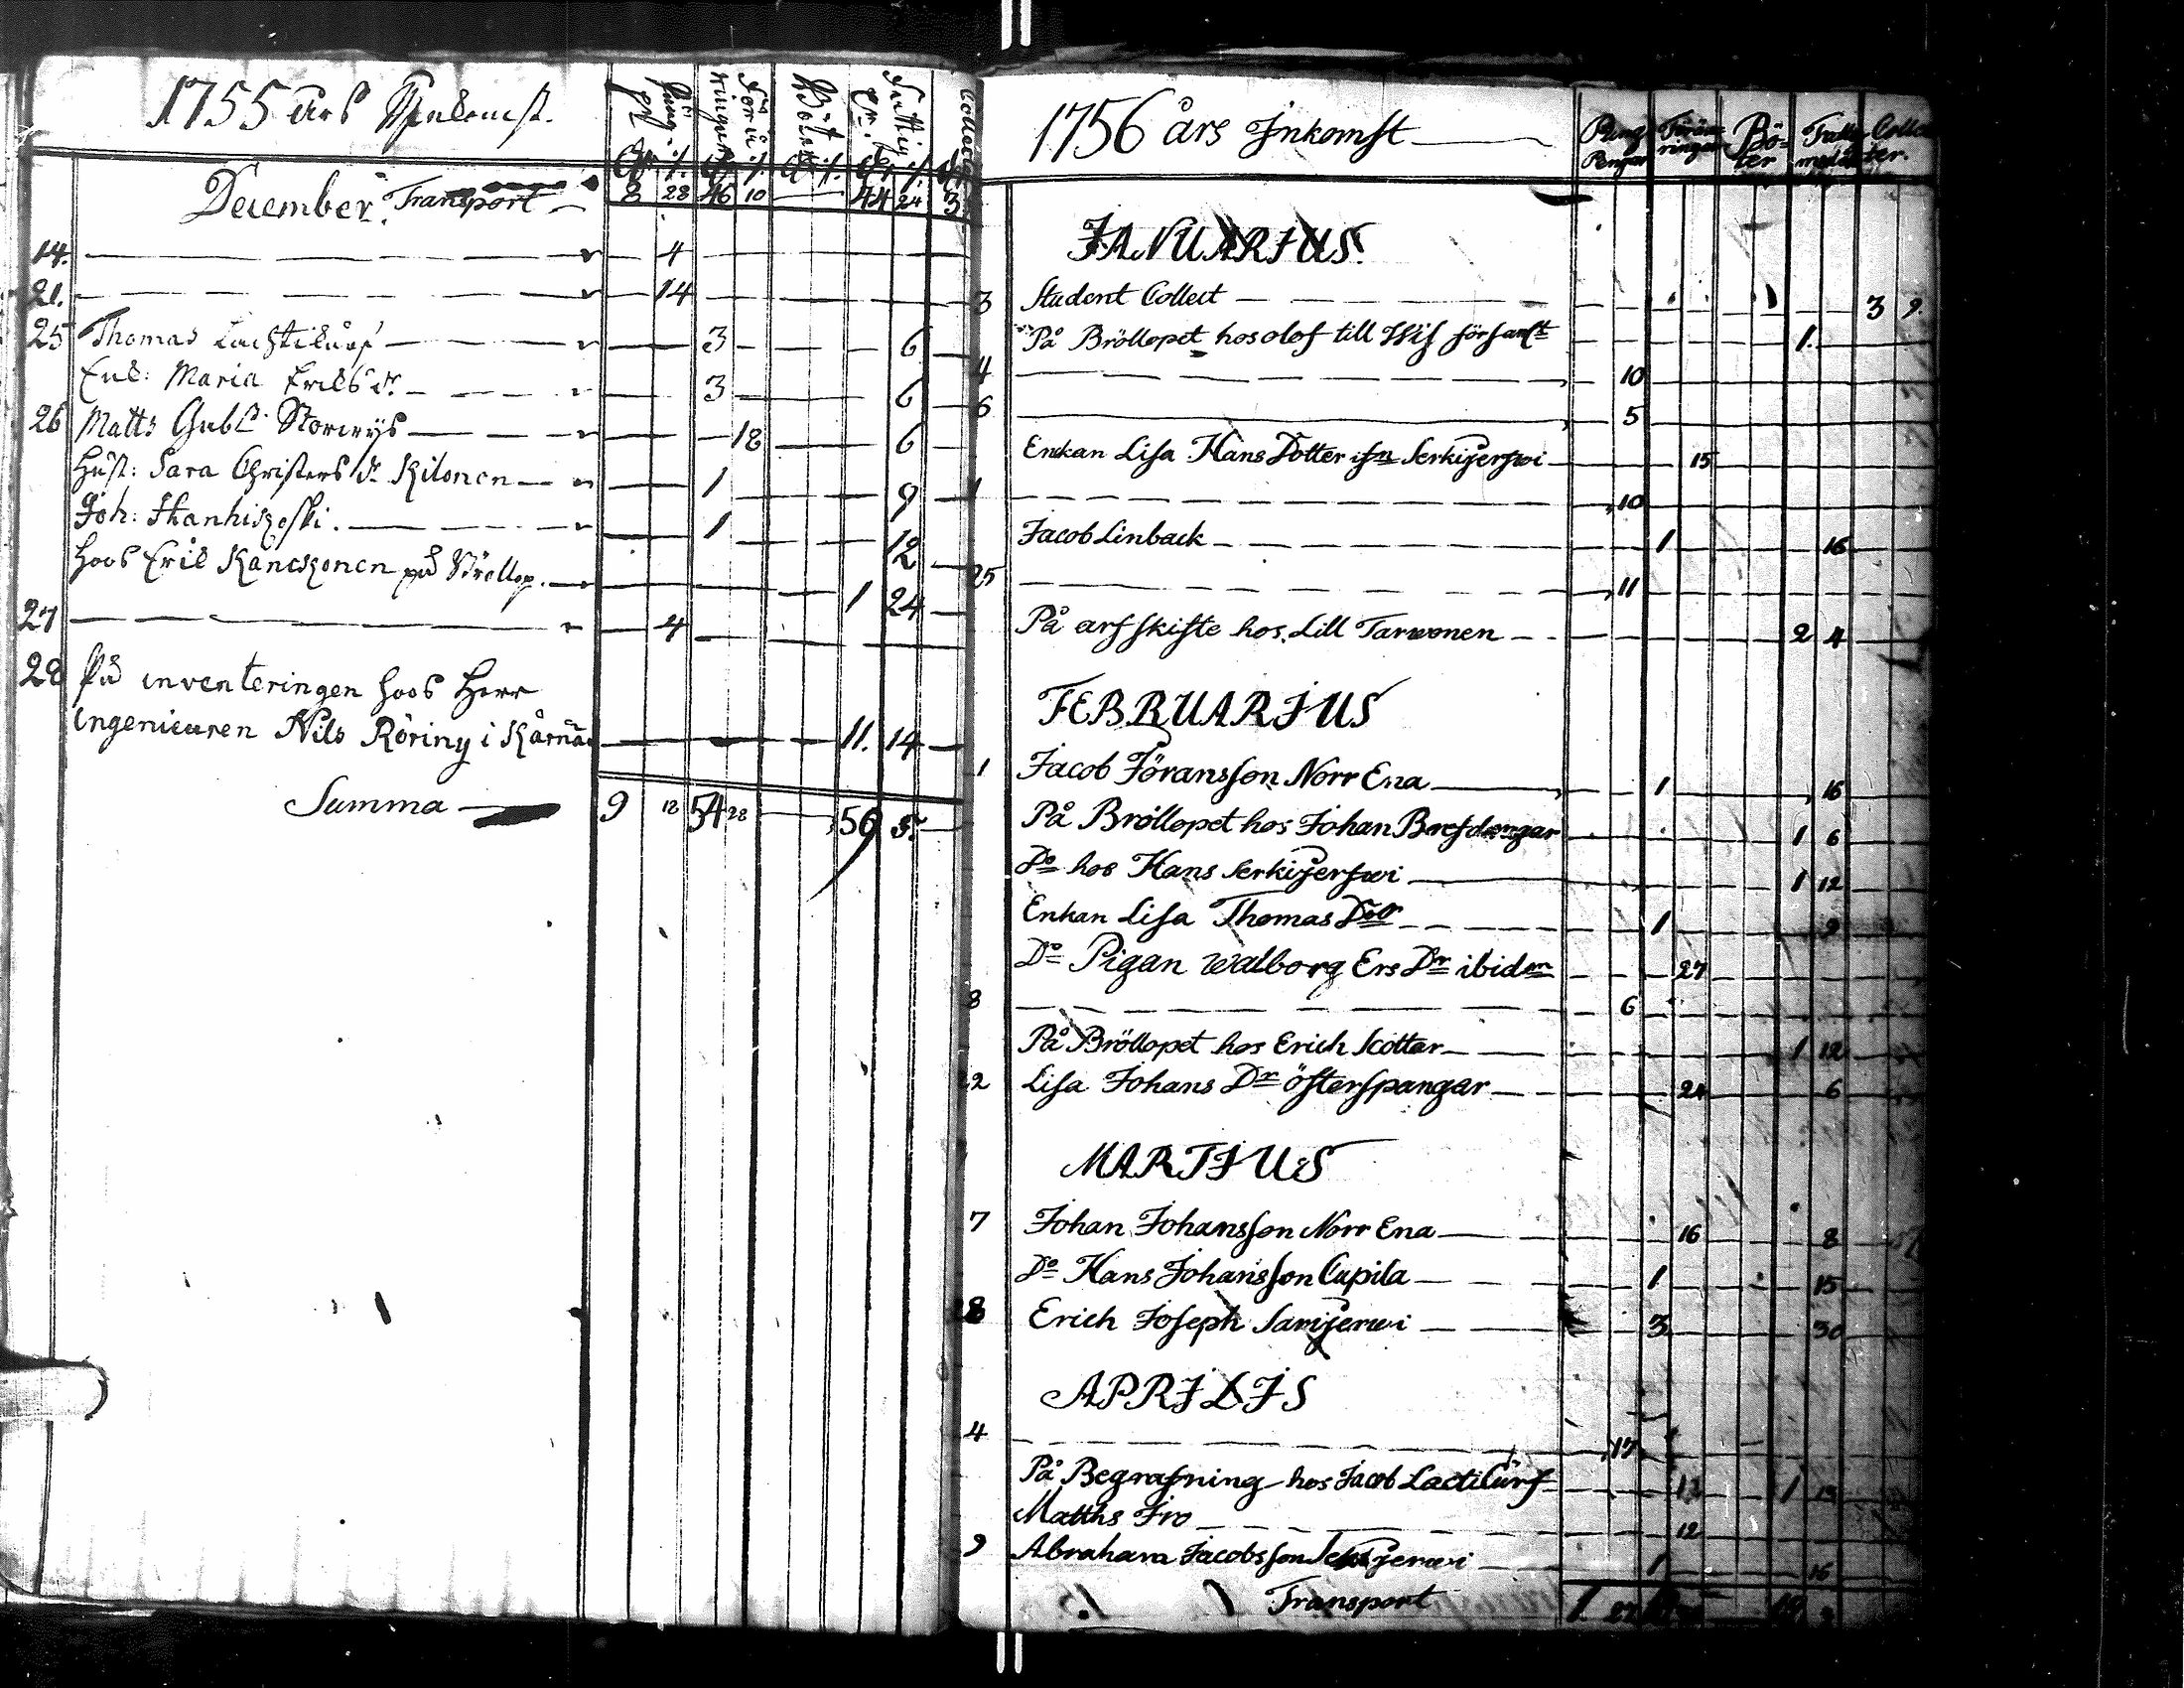 1755 års Inkomst.
December. Transport 8 28 46 10 44 24 3
14. 4
21. 14
25 Thomas 3 6
Enk: Maria Eriks dr. 3 6
26 Matts Storms 18 6
Hust: Sara Christers dr Kilonen 1 9
Joh: 1 12
hoos Erik på Bröllop. 1 24
27 4
28 På inventeringen hoos Herr
ingenieuren Nils Röring i 11. 14
Summa 9 18 54 28 59 5.
1756 års Inkomst
Pung Pengar Föräringar Böter Fattig medel Collecter.
JANUARIUS.
3 Student Collect 3 9.
På Bröllopet hos olof till 1.
4 10
6 5
Enkan Lisa Hans Dotter ifrn Serkijerfwi 15
10
Jacob Linback 1 16
25 11
På arfskifte hos Lill Tarwonen 2 4
FEBRUARIUS
1 Jacob Jöransson Norr Ena 1 16
På Bröllopet hos Johan 1 6
Do hos Hans Serkijerfwi 1 12
Enkan Lisa Thomas Dotr 1 9
Do Pigan Walborg Ers Dr ibidm 27
8 6
På Bröllopet hos Erich Kottar 1 12
22 Lisa Johans Dr österspangar 24 6
MARTIUS
7 Johan Johansson Norr Ena 16 8
Do Hans Johansson Cupila 1 15
28 Erich Joseph Sarijerwi 3 30
APRILIS
4 17
På Begrafning hos Jacob Lactilurf 12 1
Matths Iro 12
9 Abraham Jacobsson 1 16
Transport 1.